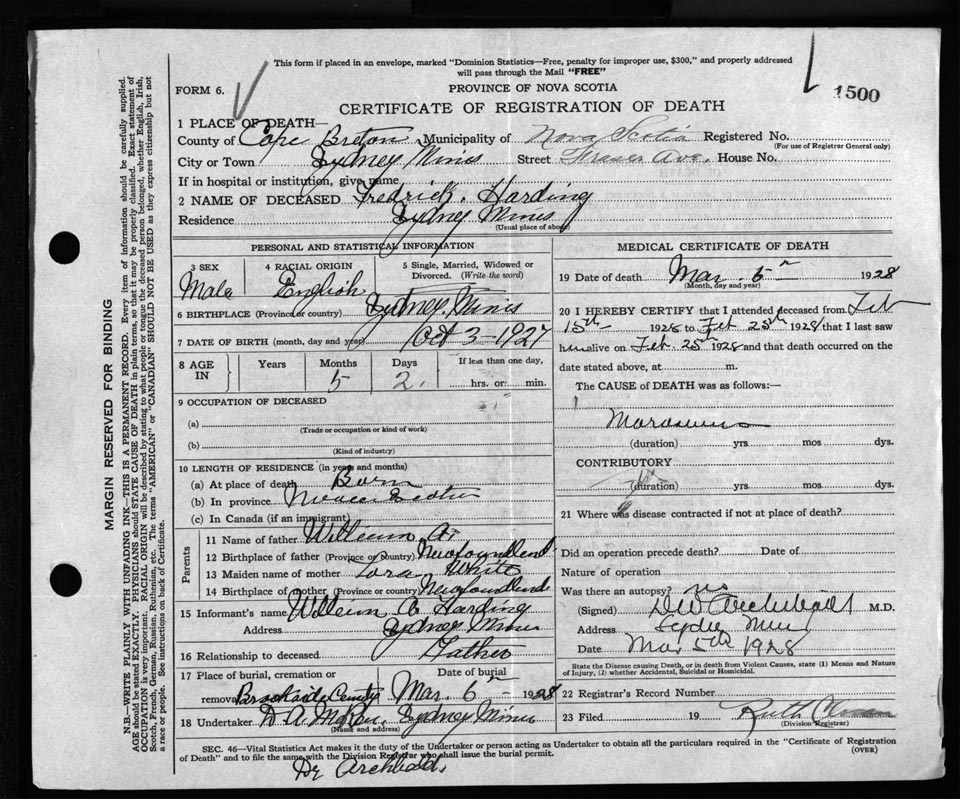 This form if placed in an envelope, marked "Dominion Statistics—Free, penalty for improper use, $300," and properly addressed
will pass through the Mail "FREE"
FORM 6.
PROVINCE OF NOVA SCOTIA
1500
CERTIFICATE OF REGISTRATION OF DEATH
1 PLACE OF DEATH—
County of Cape Breton Municipality of Nova Scotia Registered No.
(For use of Registrar General only)
City or Town Sydney Mines Street Fraser Ave. House No.
If in hospital or institution, give name
2 NAME OF DECEASED Fredrick. Harding
Residence Sydney Mines
(Usual place of abode)
PERSONAL AND STATISTICAL INFORMATION
3 SEX 4 RACIAL ORIGIN 5 Single, Married, Widowed or
Divorced. (Write the word)
Male English
6 BIRTHPLACE (Province or country) Sydney. Mines
7 DATE OF BIRTH (month, day and year) Oct 3-1927
8 AGE Years Months Days If less than one day,
IN 5 2. hrs. or min.
9 OCCUPATION OF DECEASED
(a)
(Trade or occupation or kind of work)
(b)
(Kind of industry)
10 LENGTH OF RESIDENCE (in years and months)
(a) At place of death Born
(b) In province Nova Scotia
(c) In Canada (if an immigrant)
Parents
11 Name of father William A.
12 Birthplace of father (Province or country) Newfoundland
13 Maiden name of mother White
14 Birthplace of mother (Province or country) Newfoundland
15 Informant's name William Harding
Address Sydney Mines
16 Relationship to deceased Father
17 Place of burial, cremation or Date of burial
removal Brookside County Mar. 6 1928
18 Undertaker D. A. McRae, Sydney Mines
(Name and address)
MEDICAL CERTIFICATE OF DEATH
19 Date of death Mar. 5 1928
(Month, day and year)
20 I HEREBY CERTIFY that I attended deceased from Feb
15th 1928 to Feb 25th 1928 that I last saw
him alive on Feb. 25th 1928 and that death occurred on the
date stated above, at m.
The CAUSE of DEATH was as follows:—
Marasmus
(duration) yrs mos dys.
CONTRIBUTORY
(duration) yrs. mos dys.
21 Where was disease contracted if not at place of death?
Did an operation precede death? Date of
Nature of operation
Was there an autopsy? no
(Signed) D W Archibald M.D.
Address Sydney Mines
Date Mar 5th 1928
State the Disease causing Death, or in death from Violent Causes, state (1) Means and Nature
of Injury, (2) whether Accidental, Suicidal or Homicidal.
22 Registrar's Record Number
23 Filed 19 Ruth
(Division Registrar)
SEC. 46—Vital Statistics Act makes it the duty of the Undertaker or person acting as Undertaker to obtain all the particulars required in the "Certificate of Registration
of Death" and to file the same with the Division Registrar who shall issue the burial permit.
(OVER)
Dr Archibald.
MARGIN RESERVED FOR BINDING
N.B.—WRITE PLAINLY WITH UNFADING INK—THIS IS A PERMANENT RECORD. Every item of information should be carefully supplied.
AGE should be stated EXACTLY. PHYSICIANS should STATE CAUSE OF DEATH in plain terms, so that it may be properly classified. Exact statement of
OCCUPATION is very important. RACIAL ORIGIN will be described by stating to what people or tongue the deceased person belonged, whether English, Irish,
Scotch, French, German, Russian, Ruthenian, etc. The terms "AMERICAN" or "CANADIAN" SHOULD NOT BE USED as they express citizenship but not
a race or people. See instructions on back of Certificate.